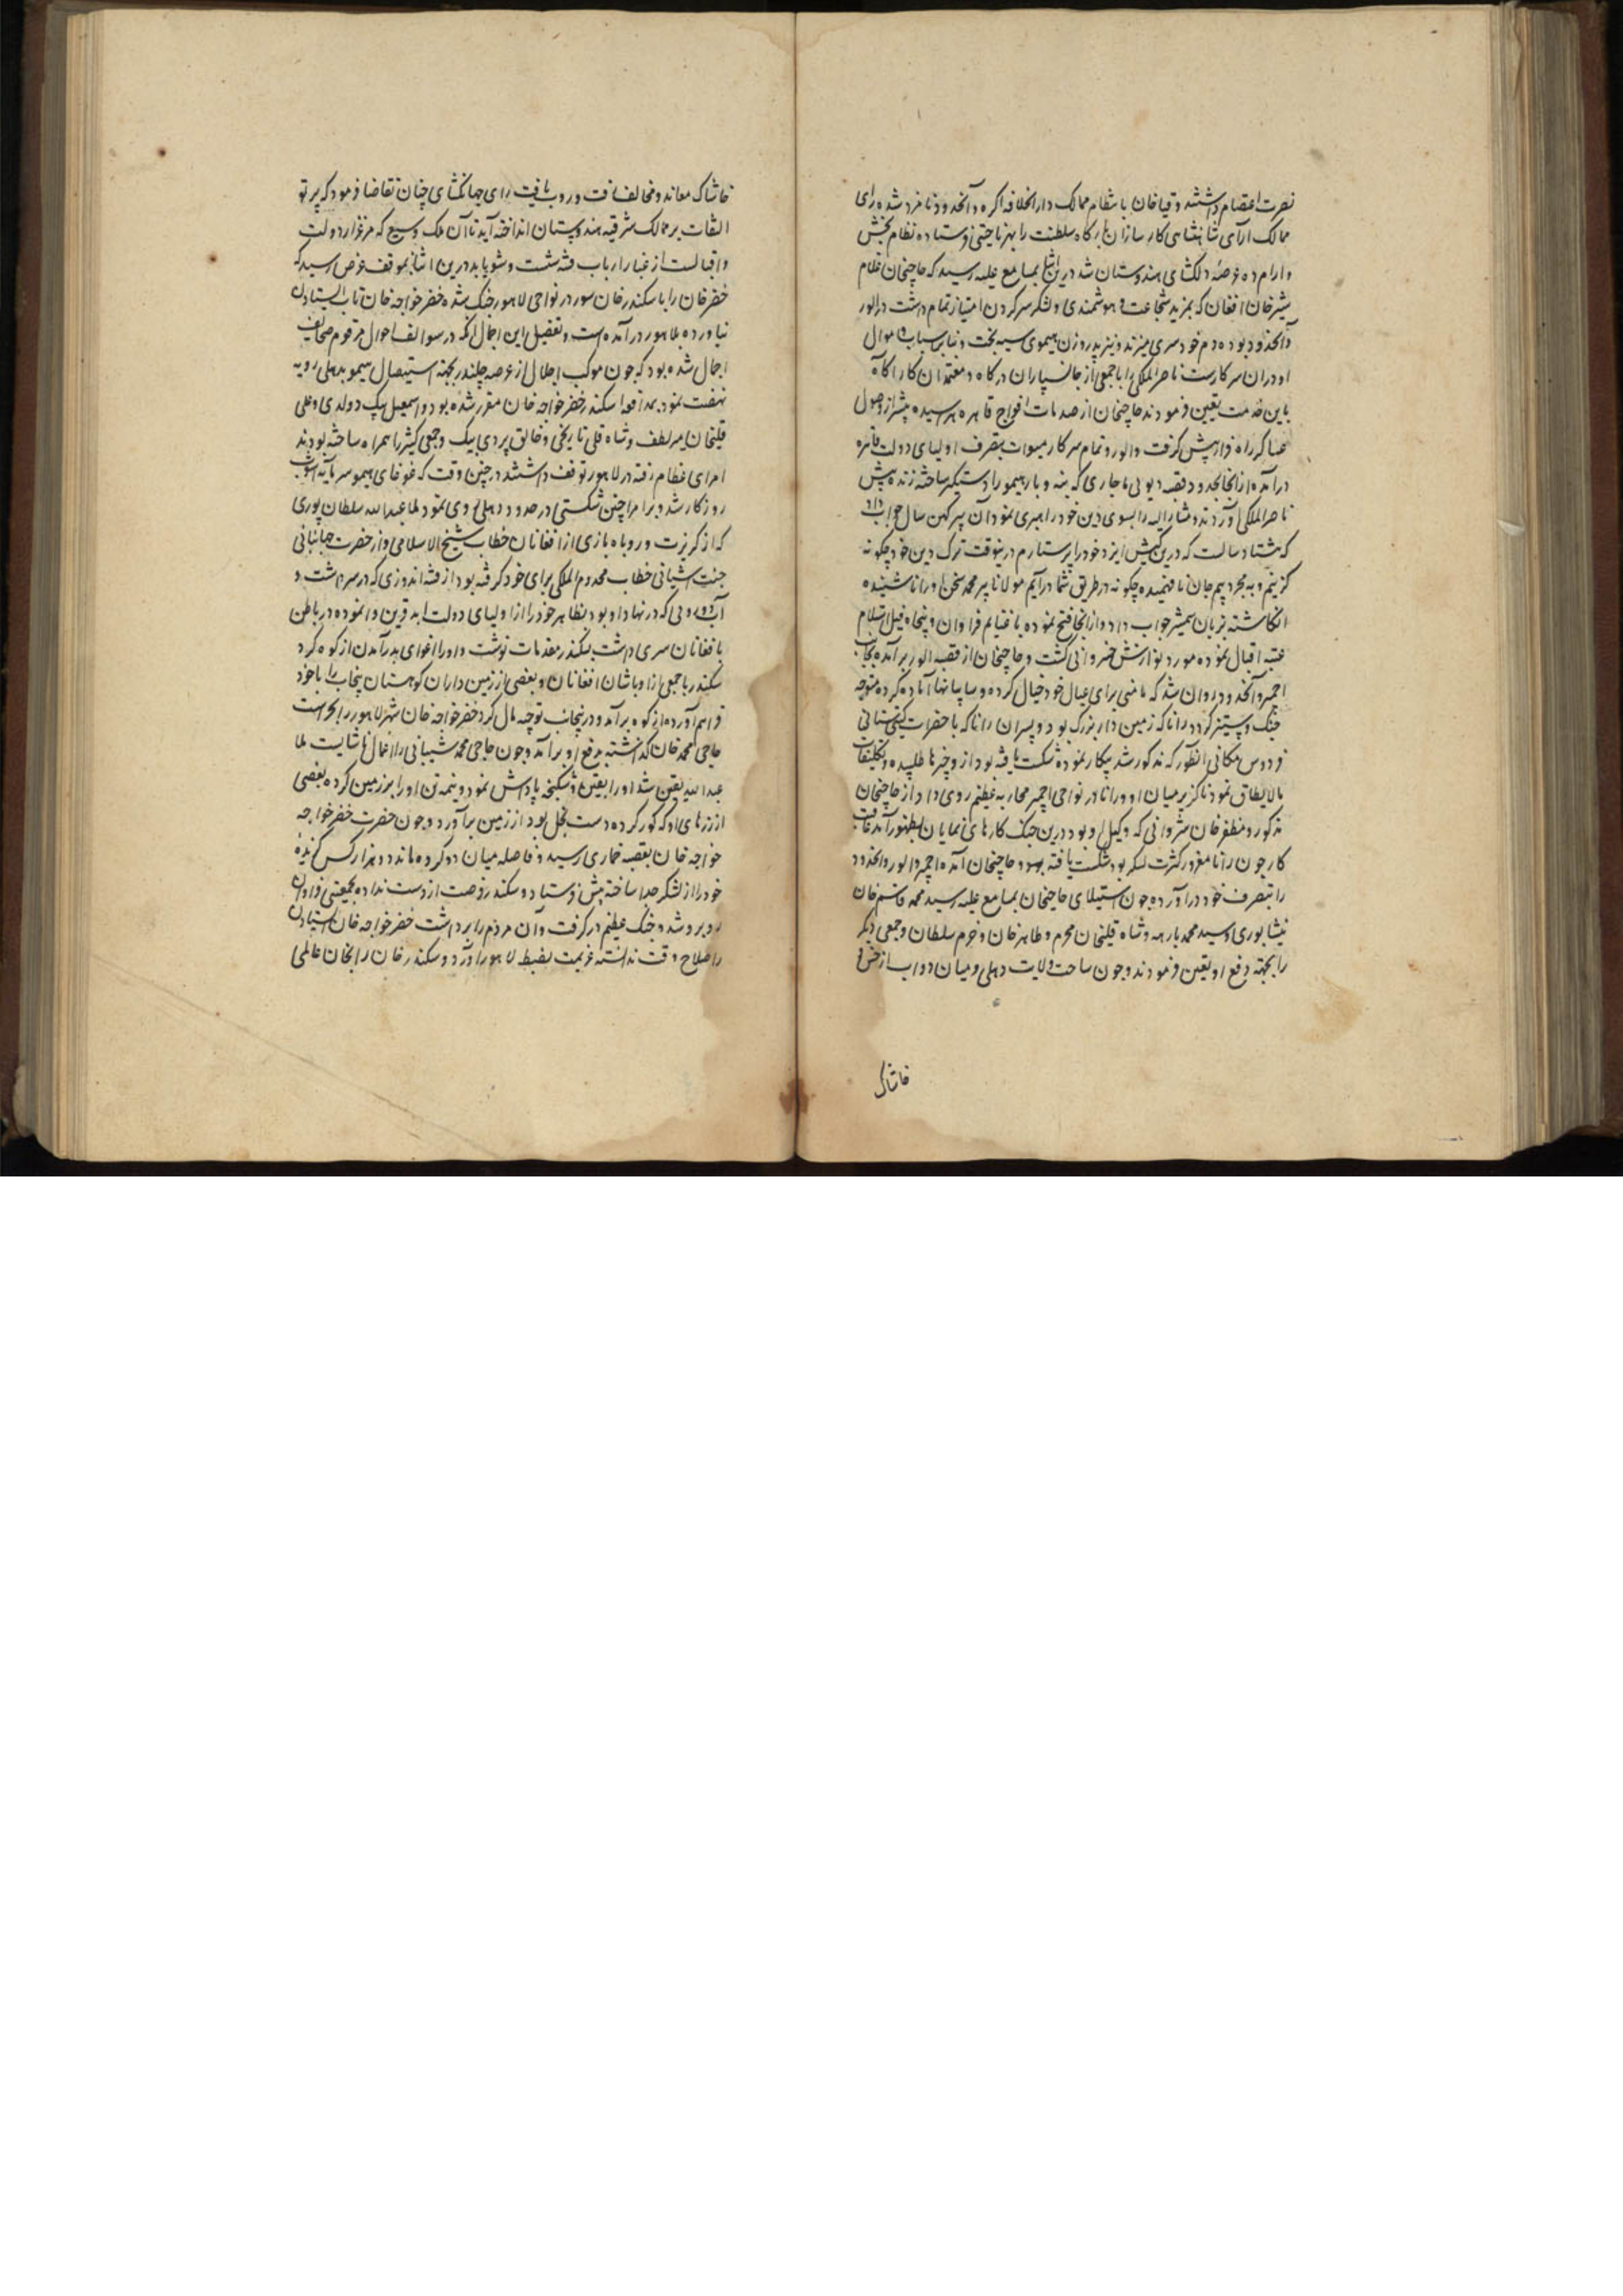 نصرت اعتصام داشتند و قیاخان بانتظام ممالک دارالخلافه اکره و آنحدود نامزد شد و رای
ممالک آرای شاهنشاهی کارسازان بارکاه سلطنت را بهر ناحیتی فرستاده نظام بخش
و آرام ده عرصهٔ دلکشای هندوستان شد درین اثنا بمسامع علیه رسید که حاجیخان غلام
شیرخان افغان که بمزید شجاعت و هوشمندی و لشکر سر کردن امتیاز تمام داشت در الور
و آنحدود بوده دم خودسری میزند و نیز پدر و زن هیموی سیه بخت و نفایس اسباب و اموال
او در آن سرکارست ناصرالملک را با جمعی از جانسپاران درکاه و معتمدان کارآکاه
باین خدمت تعین فرمودند حاجیخان از صدمات افواج قاهره هراسیده پیشتر از وصول
عساکر راه فرار پیش کرفت و الور و تمام سرکار میوات بتصرف اولیای دولت قاهره
درآمد و از آنجا بحدود قصبه دیوتی ماجاری که بنه و بار هیمو را دستگیر ساخته زنده پیش
ناصرالملک آوردند و مشارالیه را بسوی دین خود راهبری نمود آن پیر کهن سال جواب داد
که هشتاد سالست که درین کیش ایزد خود را پرستارم درینوقت ترک دین خود چکونه
کزینم و بمجرد بیم جان نافهمیده چکونه در طریق شما درآیم مولانا پیر محمد سخن او را ناشنیده
انکاشته بزبان شمشیر جواب داد و از آنجا فتح نموده با غنایم فراوان و پنجاه فیل استلام
عتبه اقبال نموده مورد نوازش خسروانی کشت و حاجیخان از قصبه الور برآمده بجانب
اجمیر و آنحدود روان شد که مامنی برای عیال خود خیال کرده و سپاهیانها آماده کرده متوجه
جنک و ستیز کردد رانا که زمین دار بزرک بود و پسر آن رانا که با حضرت کیتی ستانی
فردوس مکانی آنطور که مذکور شد پیکار نموده شکست یافته بود ازو چیزها طلبیده و تکلیفات
مالایطاق نمود ناکزیر میان او و رانا در نواحی اجمیر محاربه عظیم روی داد از حاجیخان
مذکور و مظفرخان شروانی که وکیل او بود درین جنک کارهای نمایان بظهور آمد عاقبت
کار چون رانا مغرور کثرت لشکر بود شکست یافته و حاجیخان آمده اجمیر و الور و آنحدود
را بتصرف خود درآورده چون استیلای حاجیخان بمسامع علیه رسید محمد قاسم خان
نیشابوری و سید محمد بارهه و شاه قلیخان محرم و طاهرخان و خرم سلطان و جمعی دیکر
را بجهته دفع او تعین فرمودند و چون ساحت ولایت دهلی و میان دوآب از خس و
خاشاک
خاشاک معاند و مخالف رفت و روب یافت رای جهانکشای چنان تقاضا فرمود که پرتو
التفات بر ممالک شرقیه هندوستان انداخته آید تا آن ملک وسیع که مرغزار دولت
و اقبالست از غبار ارباب فتنه شست و شو یابد درین اثنا بموقف عرض رسید که
خضرخان را با سکندرخان سور در نواحی لاهور جنک شده خضر خواجه خان تاب ایستادن
نیاورده بلاهور درآمده است و تفصیل این اجمال آنکه در سوالف احوال مرقوم صحایف
اجمال شده بود که چون موکب اجلال از عرصه جلندر بجهته استیصال هیمو بدهلی رویه
نهضت نمود بمدافعهٔ اسکندر خضر خواجه خان مقرر شده بود و اسمعیل بیک دولدی و علی
قلیخان میرلطف و شاه قلی نارنجی و خالق بردی بیک و جمعی کثیر را همراه ساخته بودند
امرای عظام رفته در لاهور توقف داشتند در چنین وقت که غوغای هیمو سرمایه آشوب
روزکار شد و بر امرا چنین شکستی در حدود دهلی روی نمود ملا عبدالله سلطان پوری
که از کربزت و روباه بازی از افغانان خطاب شیخ الاسلامی و از حضرت جهانبانی
جنت آشیانی خطاب مخدوم الملکی برای خود کرفته بود از فتنه اندوزی که در سر داشت و
که در نهاد او بود بظاهر خود را از اولیای دولت ابد قرین وانموده در باطن
با افغانان سری داشت بسکندر مقدمات نوشت و او را اغوای بدر آمدن از کوه کرد
سکندر با جمعی از اوباشان افغانان و بعضی از زمین داران کوهستان پنجاب را با خود
فراهم آورده از کوه برآمد و در پنجاب توجه مال کرد خضر خواجه خان شهر لاهور را بحراست
حاجی محمدخان کذاشته بدفع او برآمد و چون حاجی محمد شیبانی را اعمال ناشایست ملا
عبدالله یقین شد او را بقین و شکنجه پاداش نمود و نیمه تن او را بر زمین کرده بعضی
از زرهای او که کور کرده دست بخل بود از زمین برآورد و چون حضرت خضر خواجه
خواجه خان بقصبه خماری رسید و فاصله میان دو کروه ماند دو هزار کس کزیده
خود را از لشکر جدا ساخته پیش فرستاد و سکندر فرصت از دست نداده بجمعیتی فراوان
روبرو شد و جنک عظیم درکرفت و آن مردم را برداشت خضر خواجه خان ایستادن
را صلاح وقت ندانسته عزیمت بضبط لاهور آورد و سکندرخان را بخان عالمی